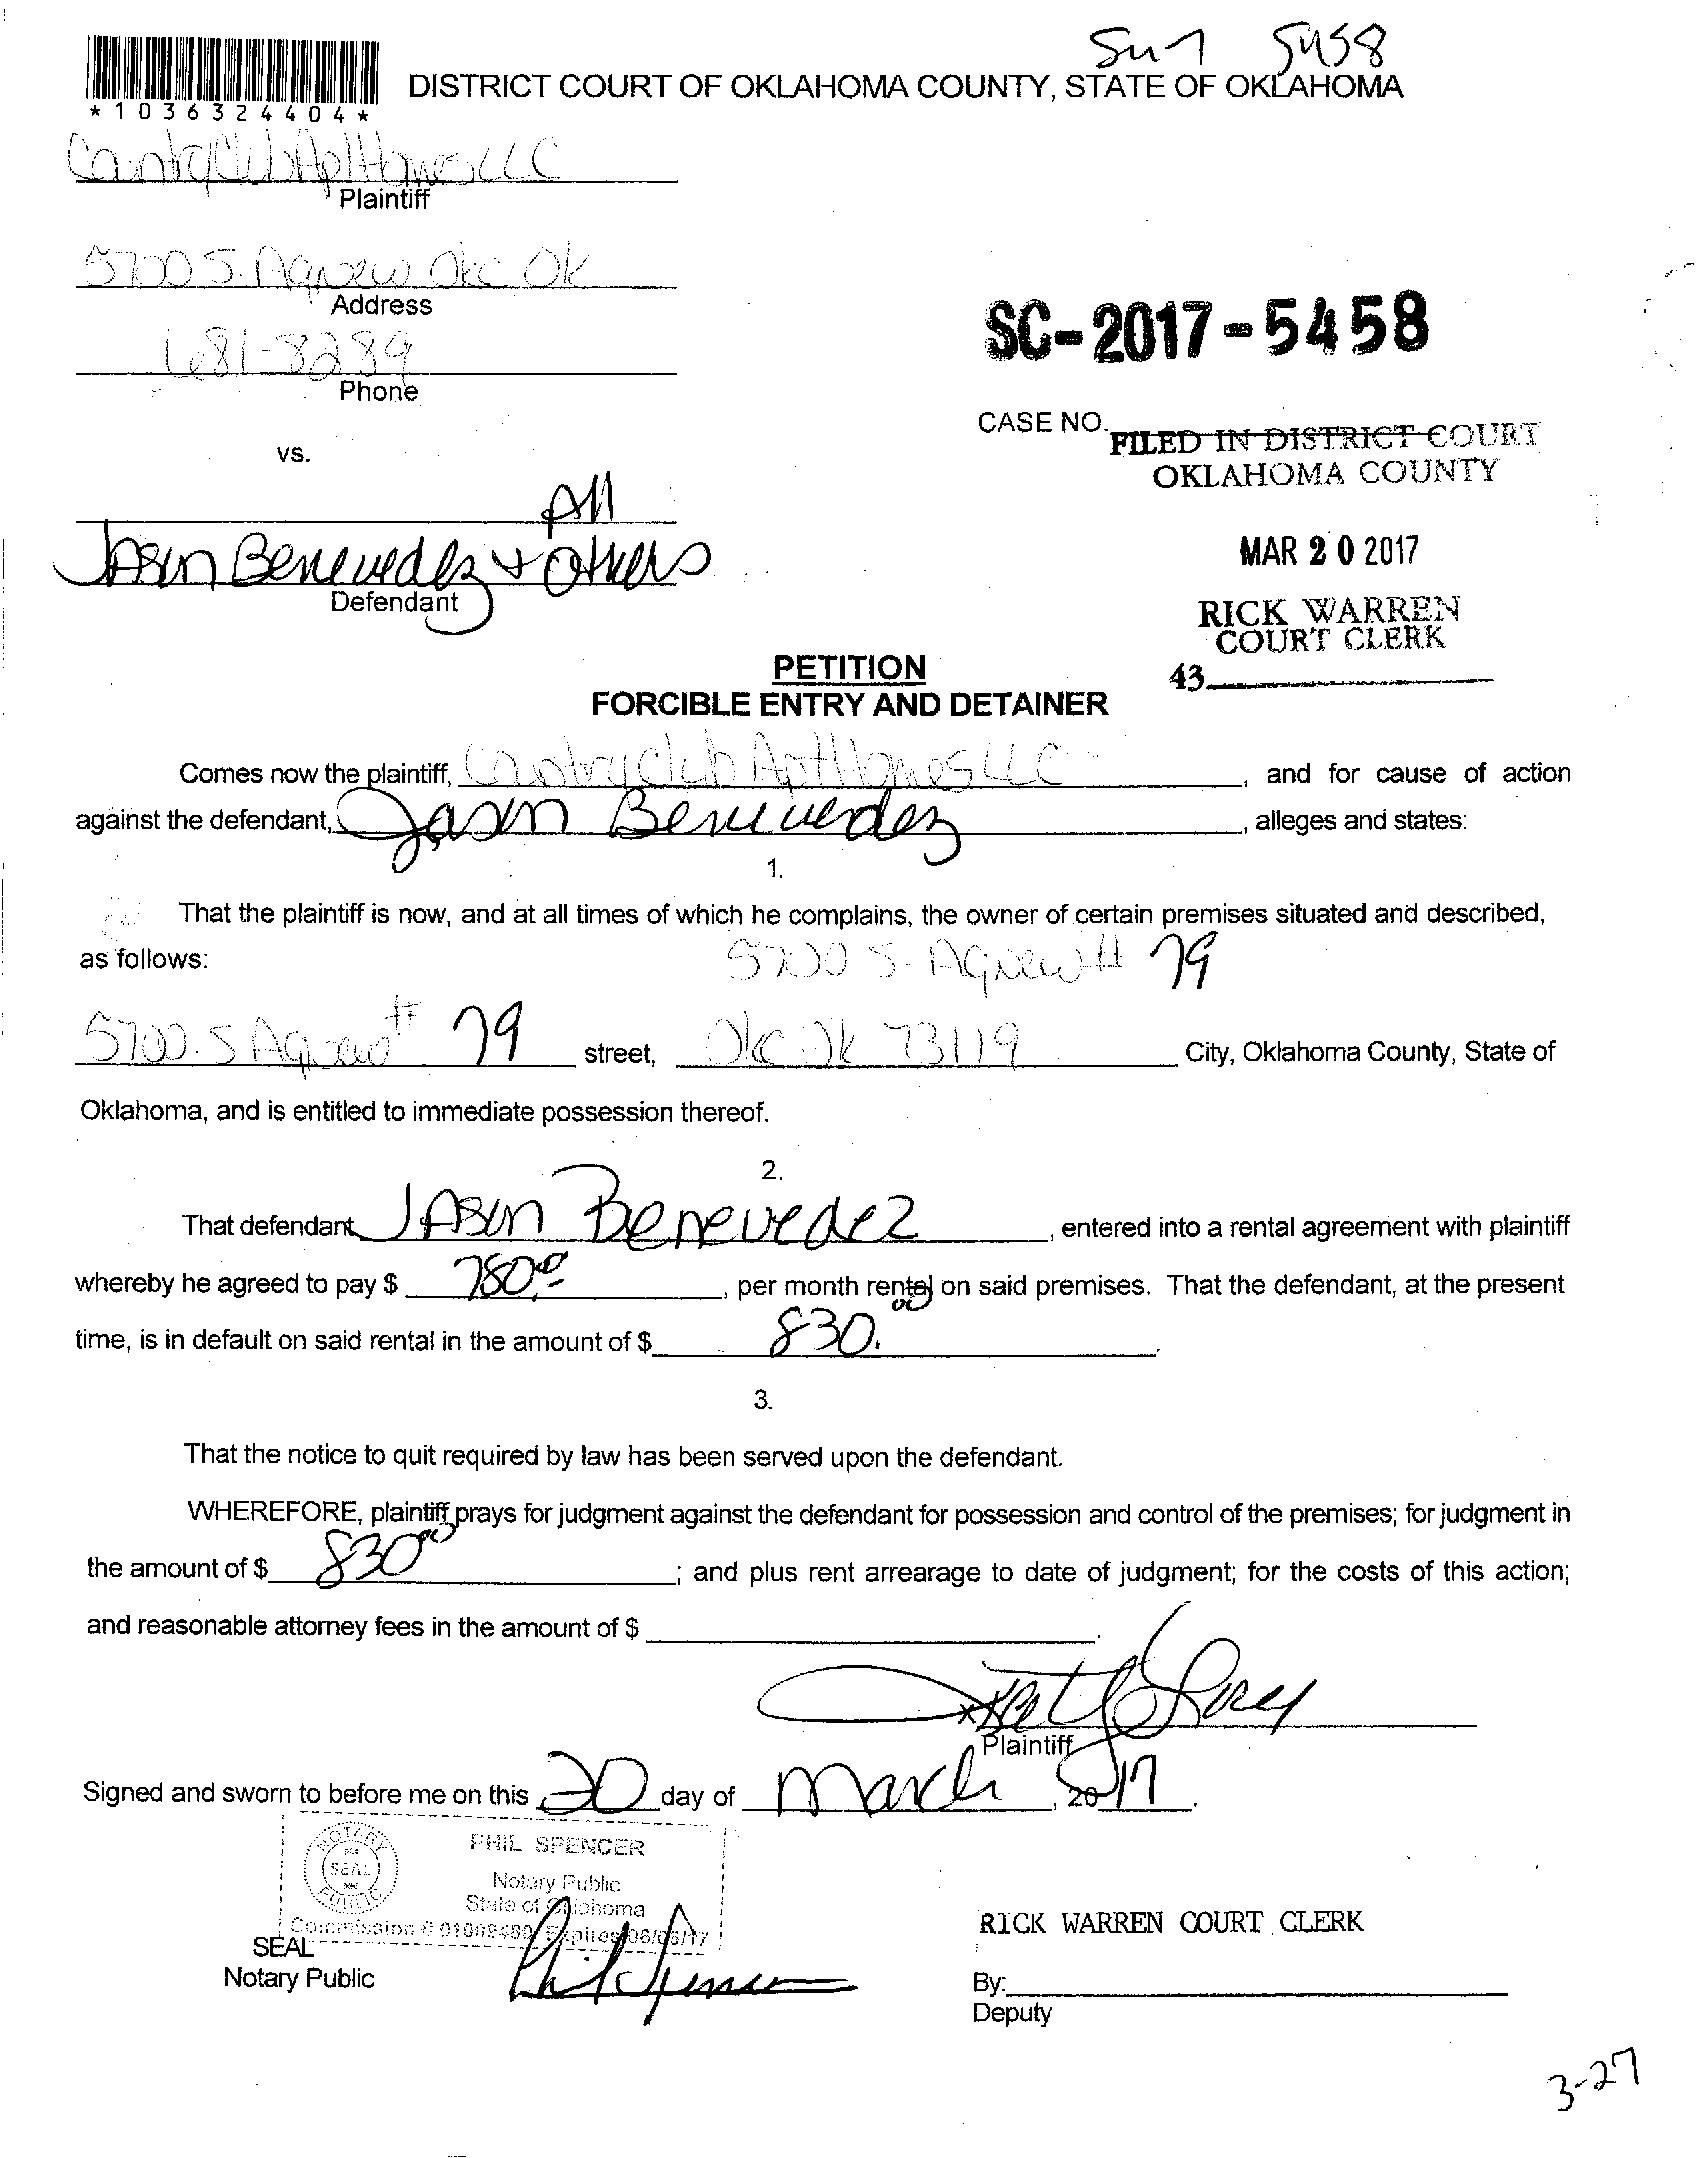 5458
DISTRICT COURT OF OKLAHOMA COUNTY, STATE OF OKLAHOMA
*1036324404*
Plaintiff
5700 S. Agnew Okc Ok
Address
681-8289
Phone
SC-2017-5458
CASE NO.
FILED IN DISTRICT COURT
OKLAHOMA COUNTY
vs.
All
Jason Benevedez + others
Defendant
MAR 20 2017
RICK WARREN
COURT CLERK
43
PETITION
FORCIBLE ENTRY AND DETAINER
Comes now the plaintiff, Apt Homes LLC, and for cause of action
against the defendant, Jason Benevedez, alleges and states:
1.
That the plaintiff is now, and at all times of which he complains, the owner of certain premises situated and described,
as follows: 5700 S. Agnew # 79
5700 S Agnew # 79 street, Okc Ok 73119 City, Oklahoma County, State of
Oklahoma, and is entitled to immediate possession thereof.
2.
That defendant Jason Benevedez, entered into a rental agreement with plaintiff
whereby he agreed to pay $ 780.00, per month rental on said premises. That the defendant, at the present
time, is in default on said rental in the amount of $ 830.00.
3.
That the notice to quit required by law has been served upon the defendant.
WHEREFORE, plaintiff prays for judgment against the defendant for possession and control of the premises; for judgment in
the amount of $ 830.00; and plus rent arrearage to date of judgment; for the costs of this action;
and reasonable attorney fees in the amount of $
Plaintiff
Signed and sworn to before me on this 20 day of March, 2017.
NOTARY
SEAL
PUBLIC
PHIL SPENCER
Notary Public
State of Oklahoma
Commission # Expires
SEAL
Notary Public
Phil Spencer
RICK WARREN COURT CLERK
By:
Deputy
3-27